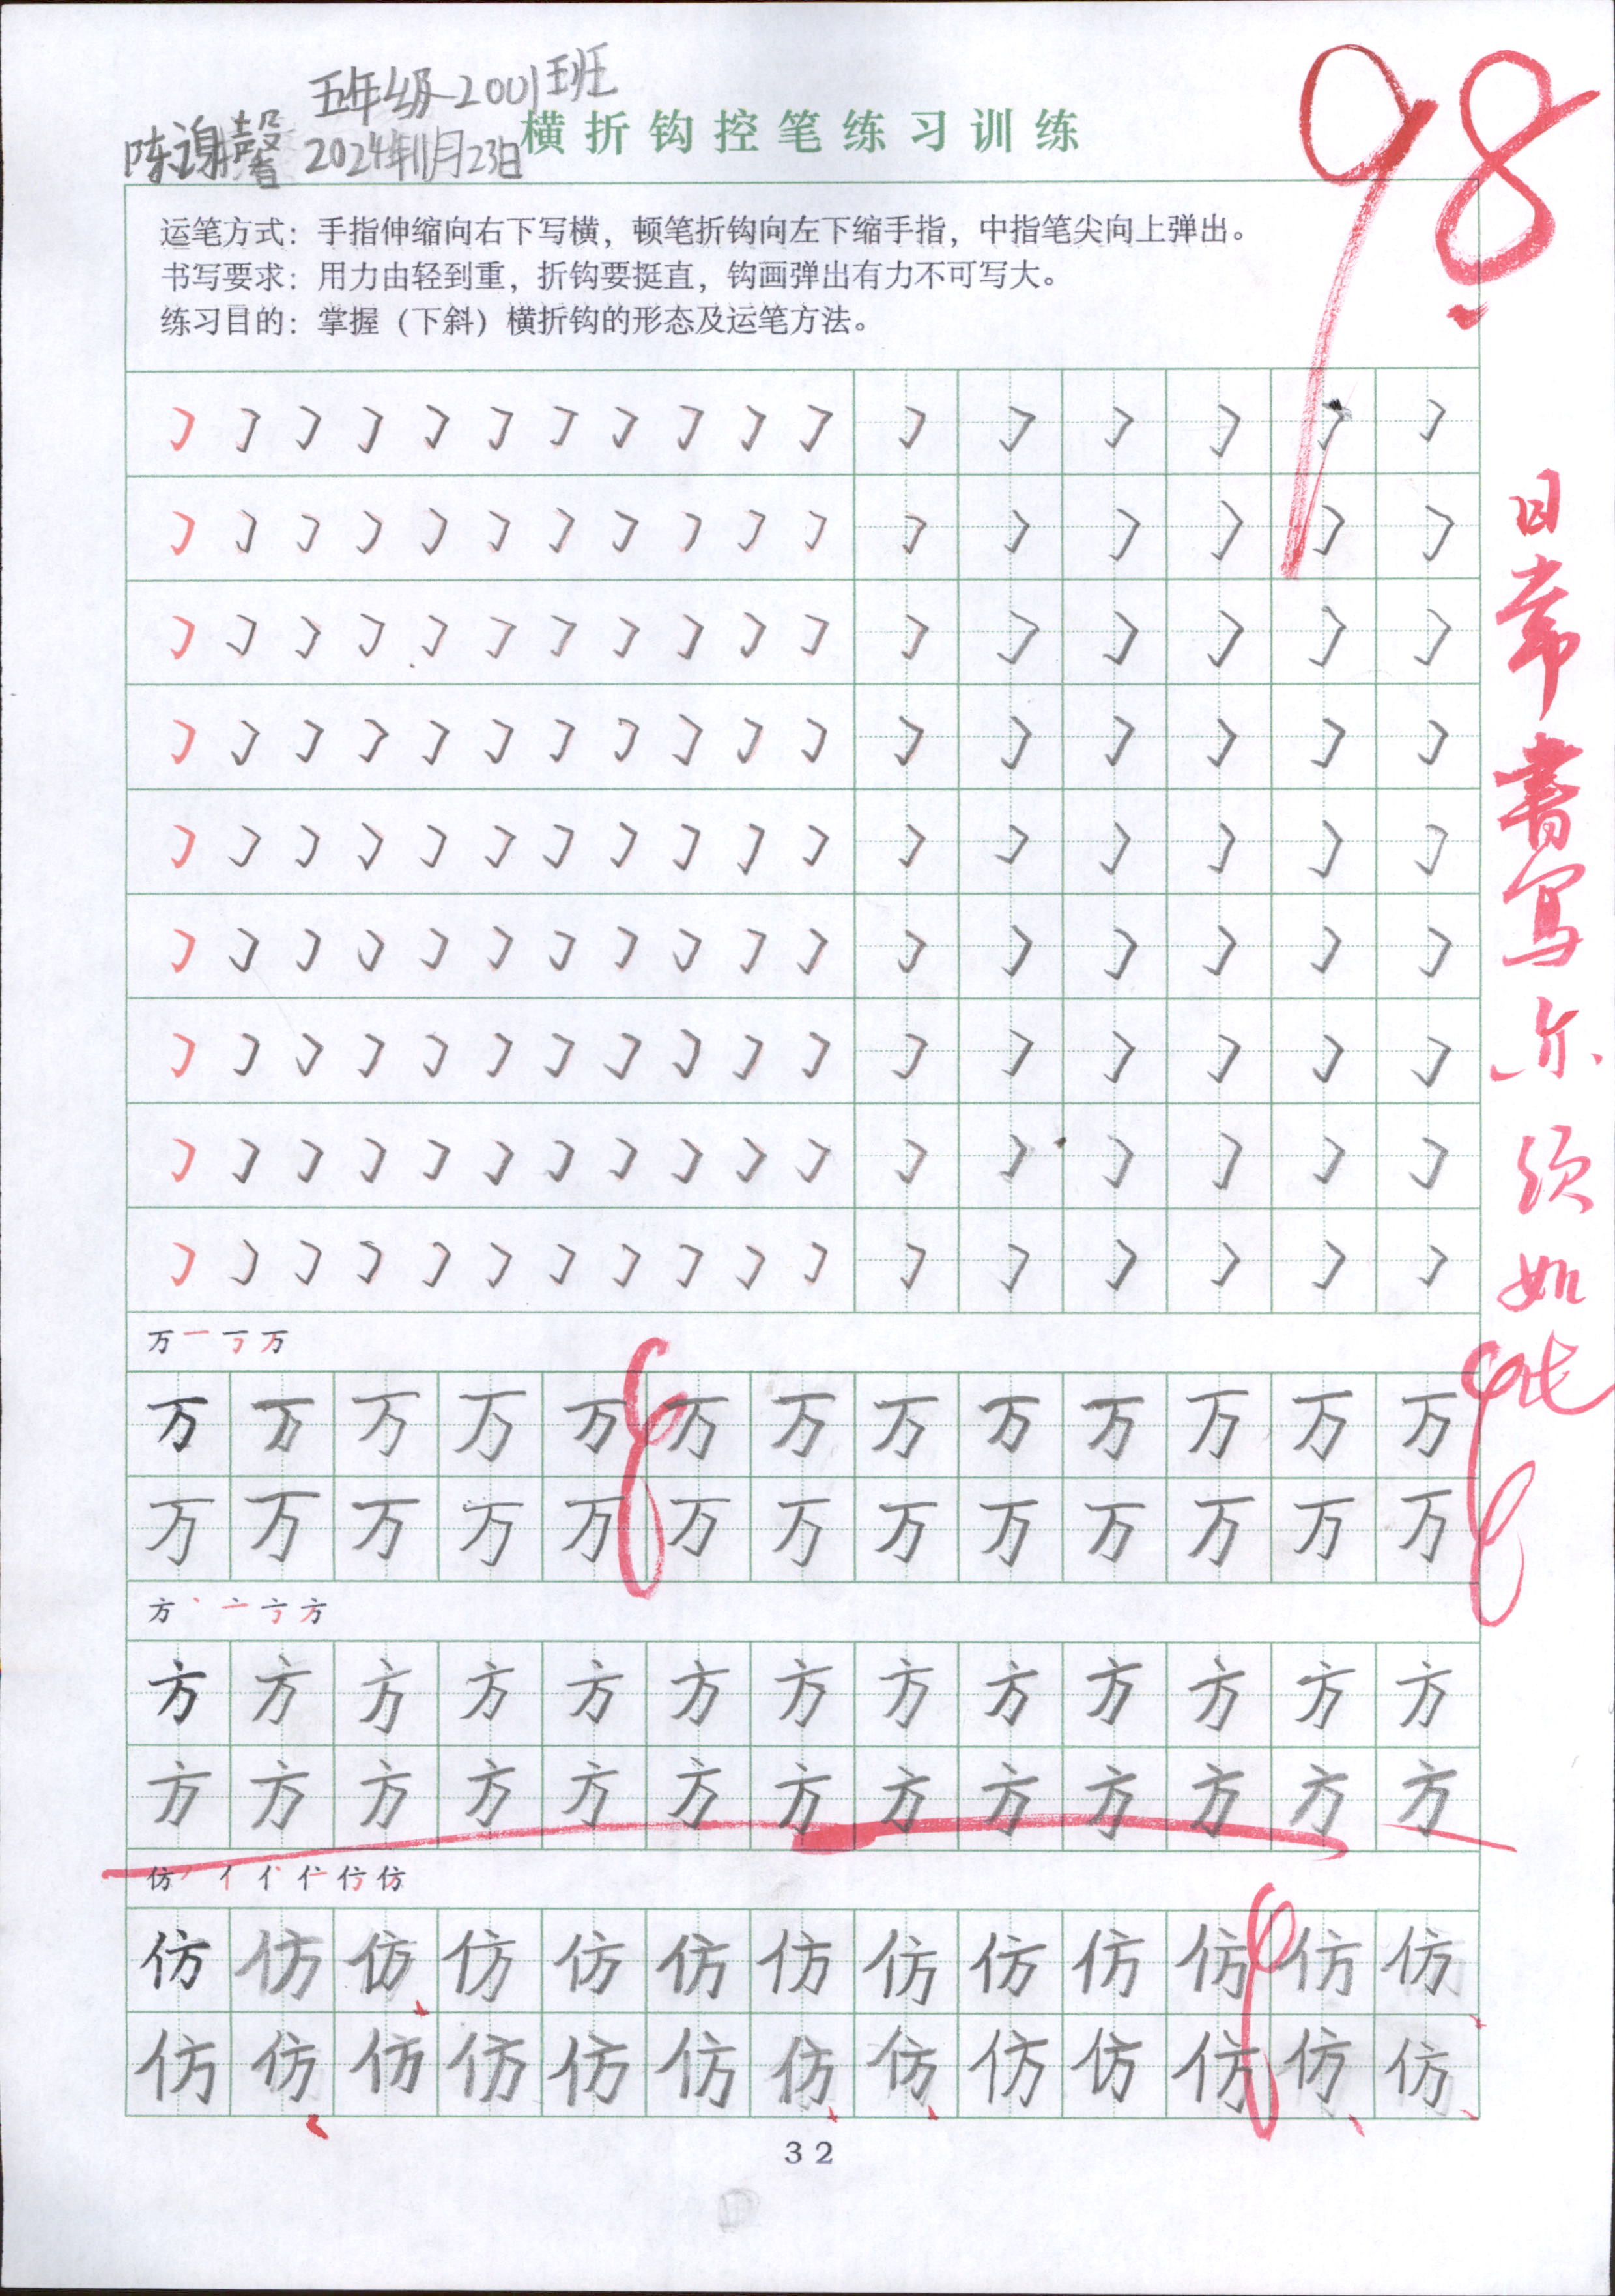 五年级2001班
陈谢馨 2024年11月23日
横折钩控笔练习训练
98
运笔方式：手指伸缩向右下写横，顿笔折钩向左下缩手指，中指笔尖向上弹出。
书写要求：用力由轻到重，折钩要挺直，钩画弹出有力不可写大。
练习目的：掌握（下斜）横折钩的形态及运笔方法。
日常书写亦须如此
万 一 丁 万
万 万 万 万 万 万 万 万 万 万 万 万 万
万 万 万 万 万 万 万 万 万 万 万 万 万
方 丶 亠 亠 方
方 方 方 方 方 方 方 方 方 方 方 方 方
方 方 方 方 方 方 方 方 方 方 方 方 方
仿 丿 亻 仿 仿
仿 仿 仿 仿 仿 仿 仿 仿 仿 仿 仿 仿 仿
仿 仿 仿 仿 仿 仿 仿 仿 仿 仿 仿 仿 仿
32